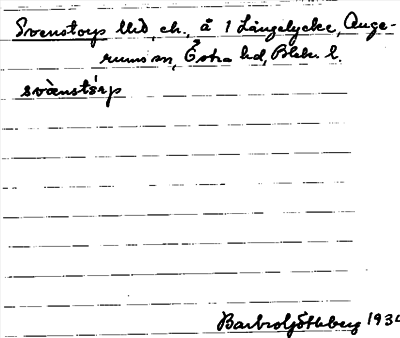 Svenstorp Med, ck., å 1 Långelycke, Auge-
rums sn, Östra hd, Blek. l.
svä̀nstårp
Barbro Götheberg 193